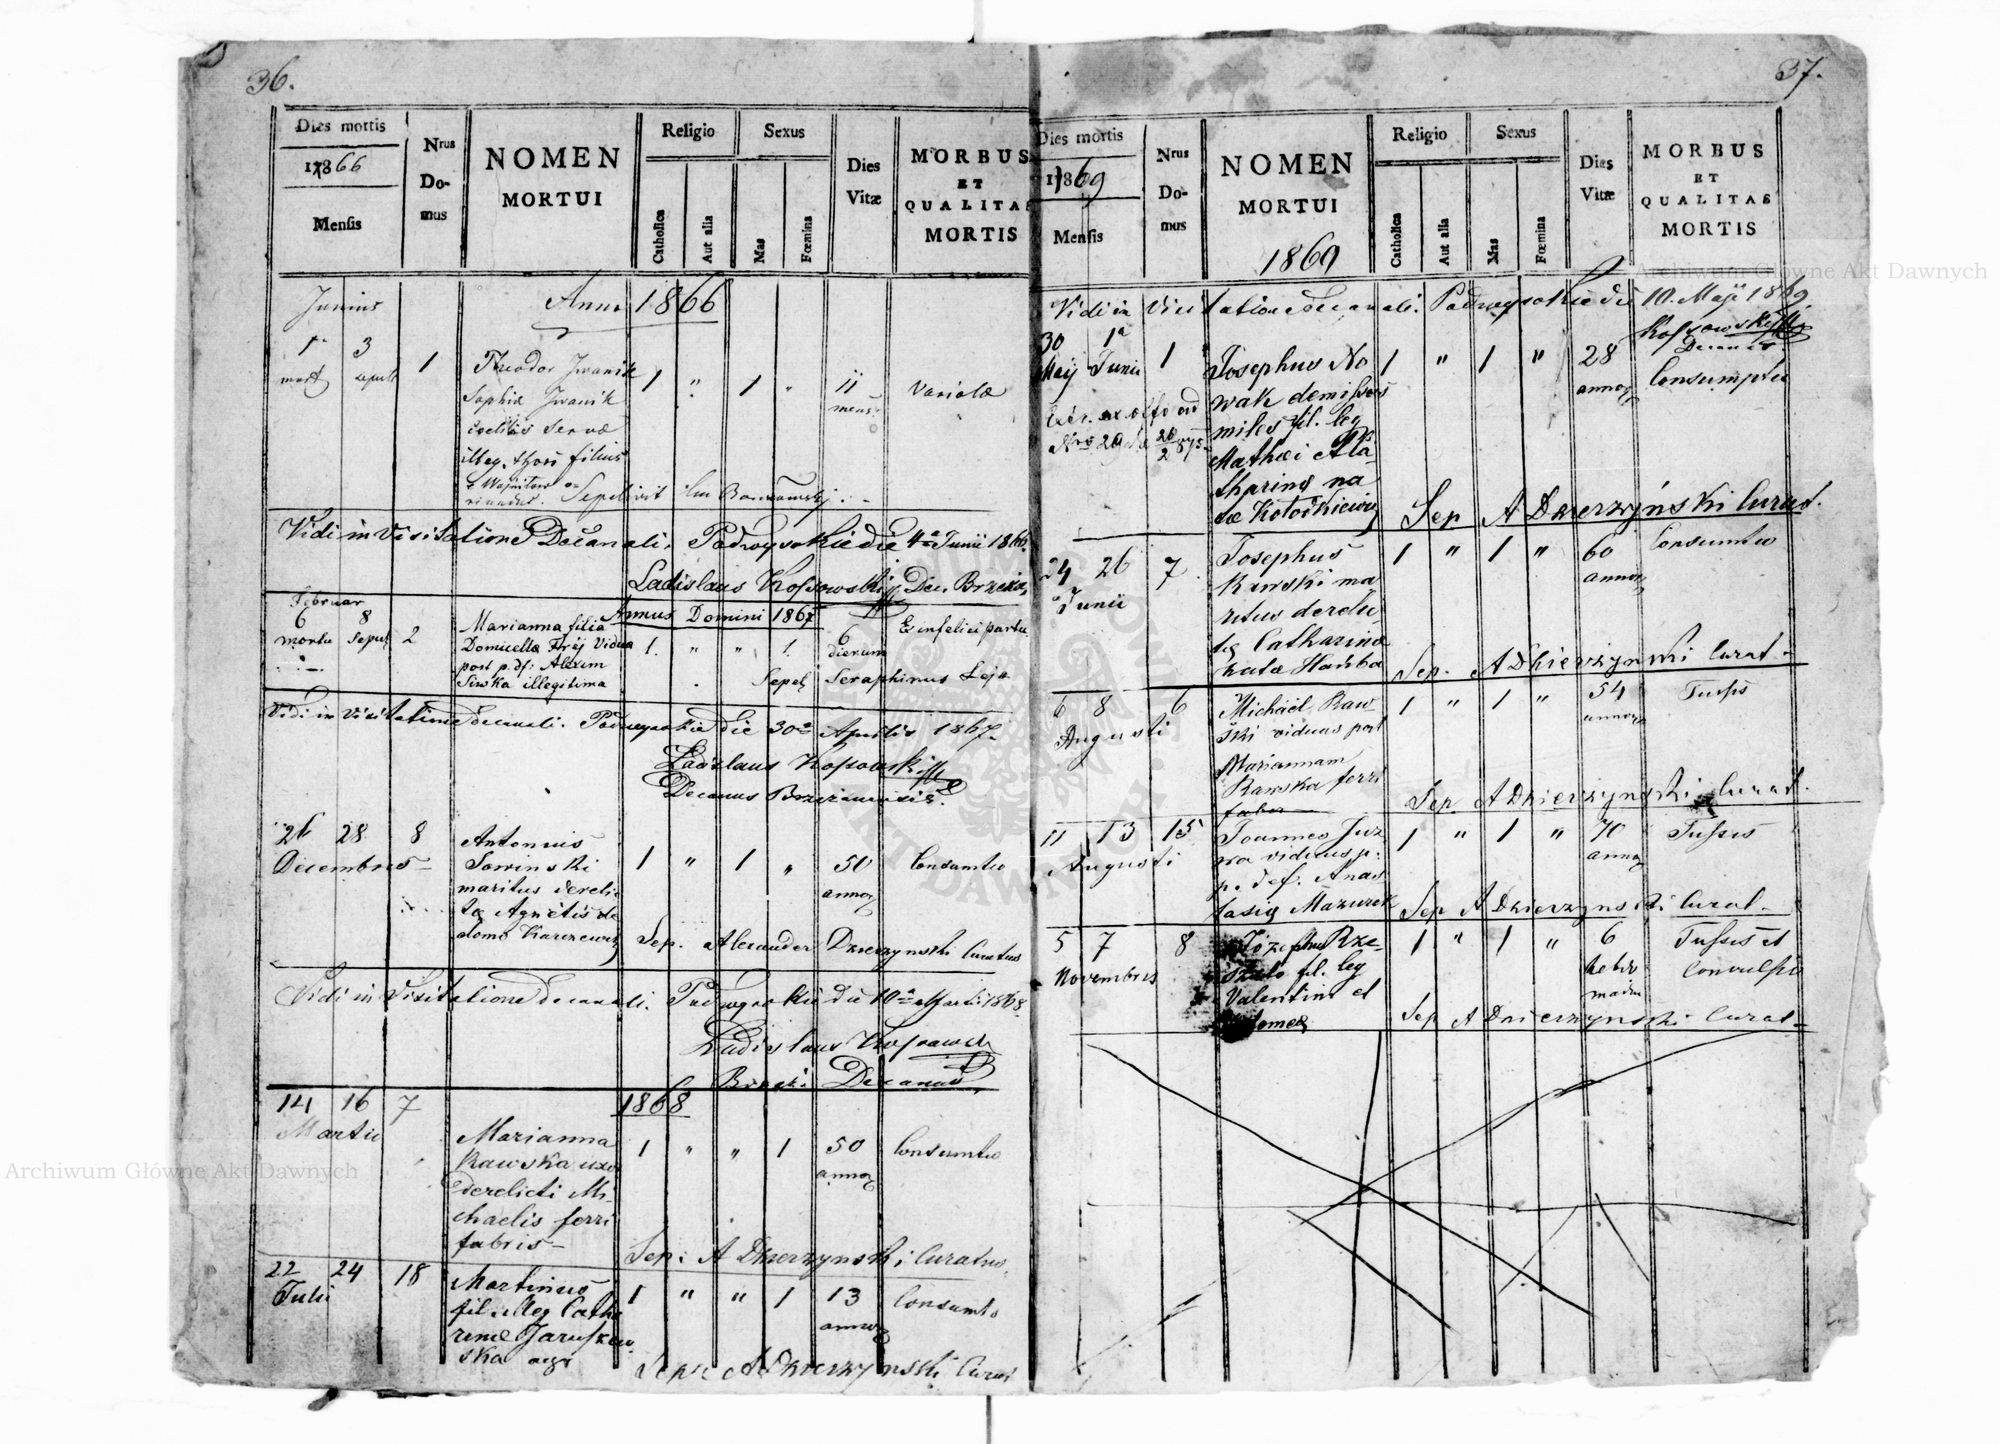 36.
Dies mortis
1866
Mensis
Nrus
Do-
mus
NOMEN
MORTUI
Religio
Catholica
Aut alia
Sexus
Mas
Fœmina
Dies
Vitæ
MORBUS
ET
QUALITAS
MORTIS
Junius
Anno 1866
1 3
1
Theodor Iwanik
1 " 1 "
11
mens
Variolæ
Sophiæ Iwanik
servæ
illeg. thori filius
Sepelivit
Vidi in Visitatione Decanali. Podwysokie die 4a Junii 1866.
Ladislaus Kossowski Dec. Brzeżan
Annus Domini 1867
Februar
6 8
mortu Sepul
2
Marianna filia
Domicellæ Vidua
post p. df: Alexim
Siwka illegitima
1. " " 1.
6
dierum
Ex infelici partu
Sepel Seraphinus Leja
Vidi in Visitatione decanali. Podwysokie die 30a Aprilis 1867.
Ladislaus Kossowski
Decanus Brzeżanensis.
26 28 8
Decembris
Antonius
Sawinski
maritus derelic
tæ Agnetis de
domo Karczewicz
1 " 1 "
50
annor
Consumtio
Sep. Alexander Dzierzynski Curatus
Vidi in Visitatione decanali. Podwysokie die 10a 1868.
Ladislaus Kossowski
Decanus
1868
14 16 7
Martii
Marianna
Rawska uxor
derelicti Mi-
chaelis ferri
fabris
1 " " 1
50
annor
Consumtio
Sep: A Dzierzynski Curatus.
22 24 18
Julii
Martinus
fil. illeg Catha
rinæ Jaruszew
ska
1 " " 1
13
annor
Consumtio
Sep: A Dzierzynski Curat
37.
Dies mortis
1869
Mensis
Nrus
Do-
mus
NOMEN
MORTUI
1869
Religio
Catholica
Aut alia
Sexus
Mas
Fœmina
Dies
Vitæ
MORBUS
ET
QUALITAS
MORTIS
Vidi in Visitatione decanali. Podwysokie die 10. Maji 1869.
Kossowski
Decanus
30 1a
Maij Junii
1
Josephus No
wak demissus
miles fil. leg
Mathæi
tharinæ na
tæ
1 " 1 "
28
annor
Consumptio
Extr. ex offo ad
Nro 29
Sep A Dzierzyński Curat.
24 26 7
Junii
Josephus
Rawski ma
ritus derelic
tæ Catharinæ
natæ Hanba
1 " 1 "
60
annor
Consumtio
Sep. A Dzierzynski Curat
6 8 6
Augusti
Michael Raw
ski viduus post
Mariannam
Rawska ferri
faber
1 " 1 "
54
annor
Tussis
Sep A Dzierzynski Curat.
11 13 15
Augusti
Joannes
viduus p.
p. def. Anas
tasiæ Mazurek
1 " 1 "
70
annor
Tussis
Sep A Dzierzynski Curat
5 7 8
Novembris
Józephus Rze-
fil. leg
Valentini et
1 " 1 "
6
Tussis et
Convulsio
Sep A Dzierzynski Curat
Archiwum Główne Akt Dawnych
Archiwum Główne Akt Dawnych